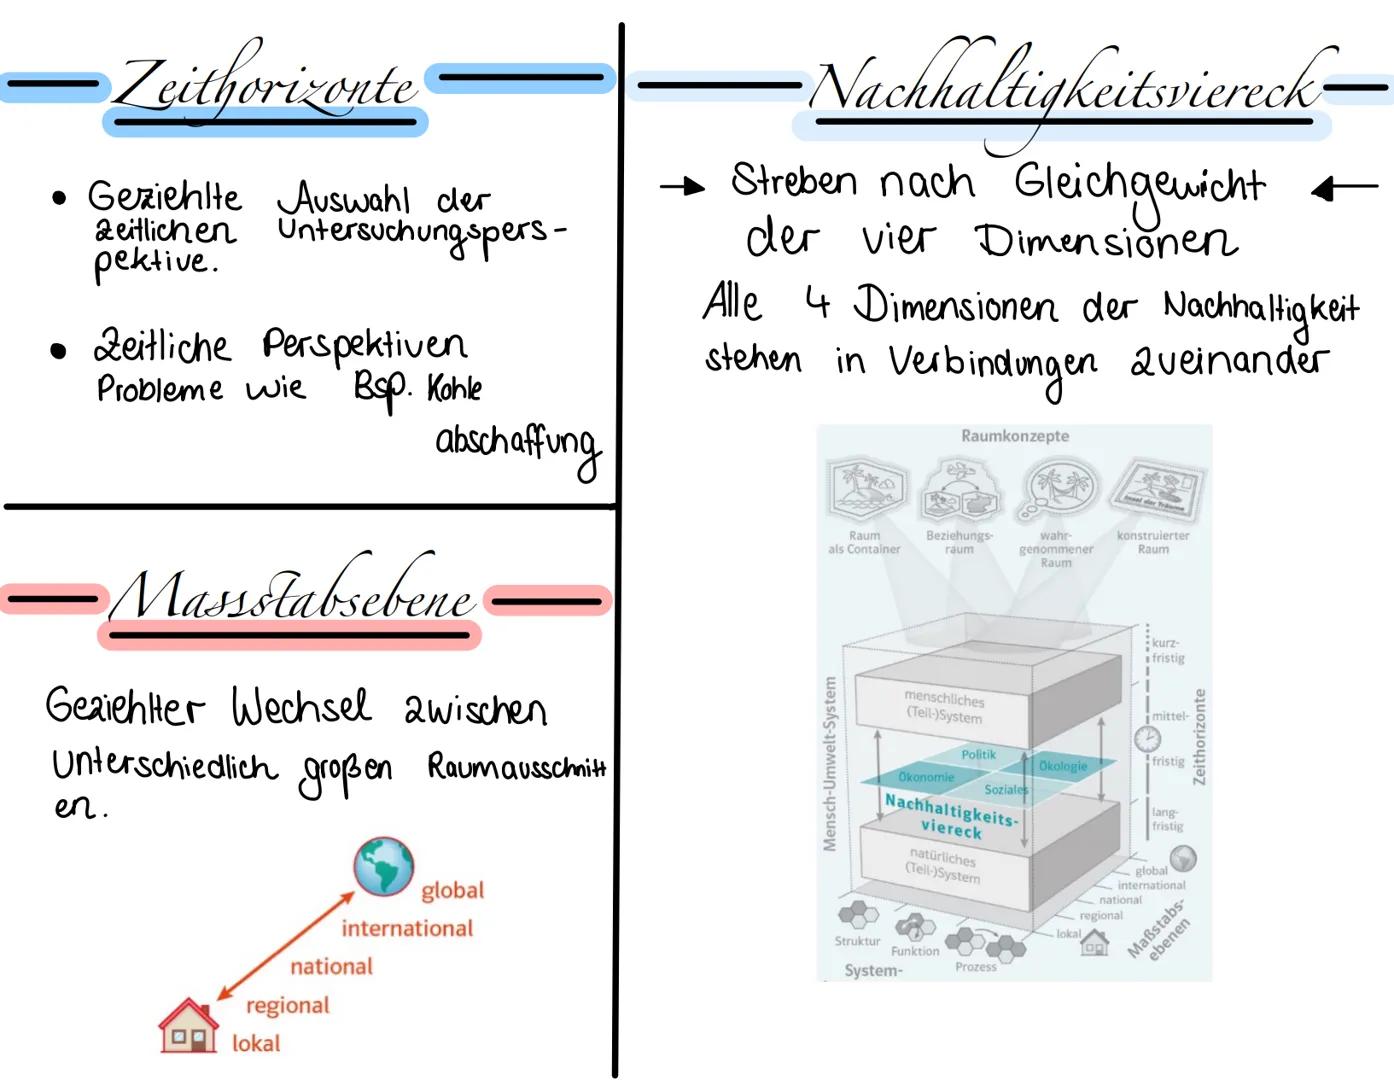 Zeithorizonte
• Geziehlte Auswahl der
zeitlichen Untersuchungspers-
pektive.
• Zeitliche Perspektiven
Probleme wie Bsp. Kohle
abschaffung
Massstabsebene
Geziehlter Wechsel zwischen
Unterschiedlich großen Raumausschnitt
en.
global
international
national
regional
lokal
Nachhaltigkeitsviereck
→ Streben nach Gleichgewicht ←
der vier Dimensionen
Alle 4 Dimensionen der Nachhaltigkeit
stehen in Verbindungen zueinander
Raumkonzepte
Insel der Träume
Raum
als Container
Beziehungs-
raum
wahr-
genommener
Raum
konstruierter
Raum
Mensch-Umwelt-System
menschliches
(Teil-)System
Politik
Ökonomie
Ökologie
Soziales
Nachhaltigkeits-
viereck
natürliches
(Teil-)System
kurz-
fristig
mittel-
fristig
lang-
fristig
Zeithorizonte
global
international
national
regional
lokal
Maßstabs-
ebenen
Struktur
Funktion
Prozess
System-